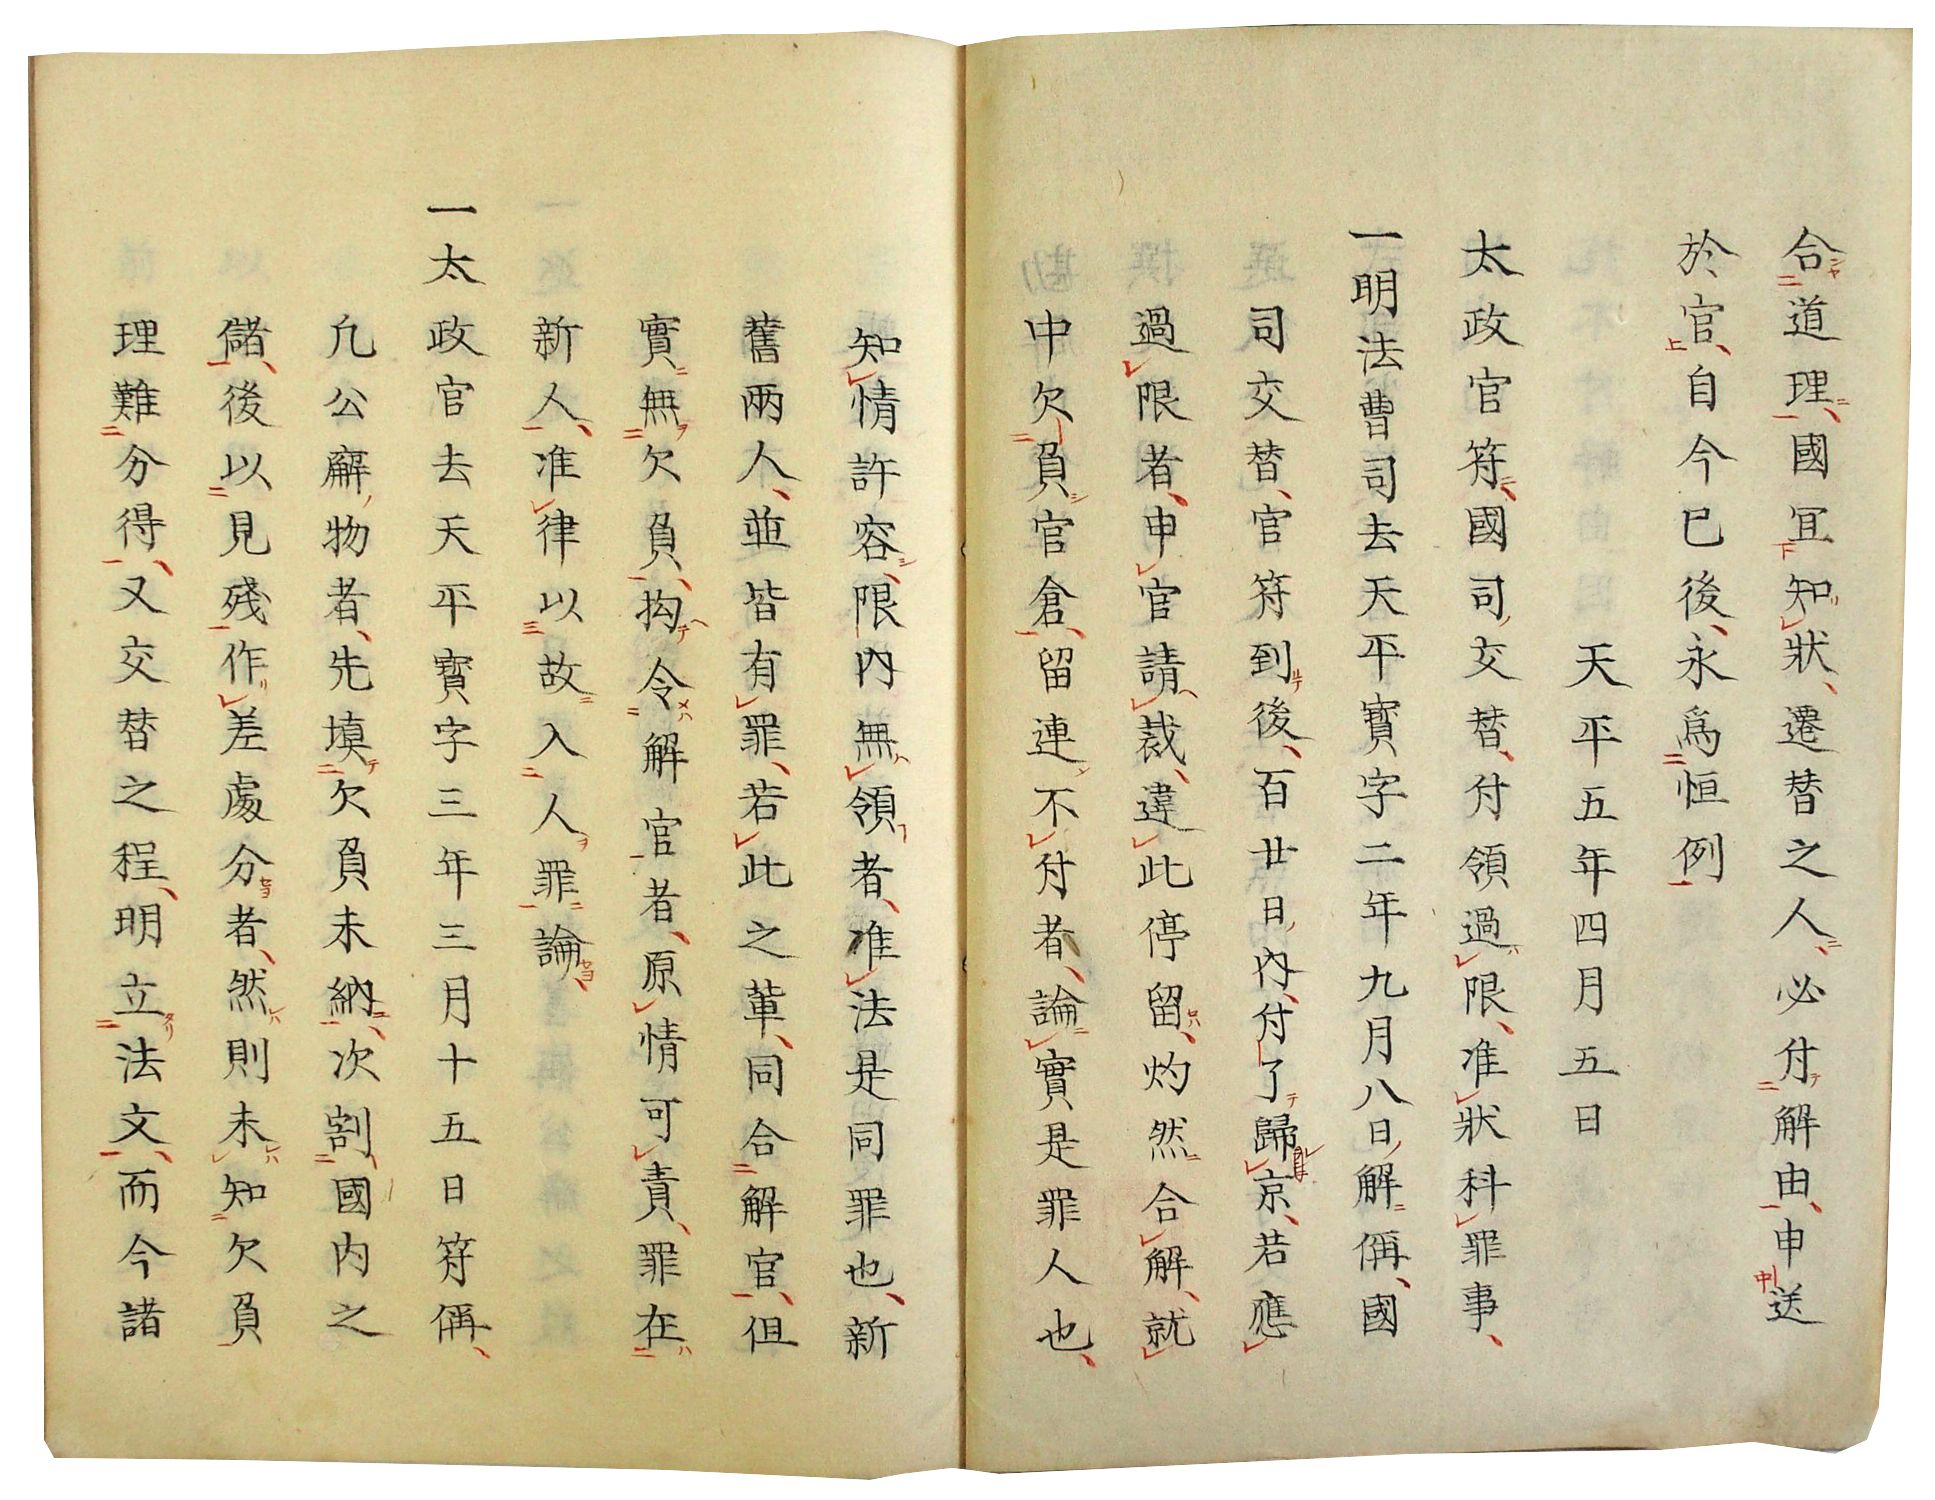 合道理國冝知狀遷替之人必付解由申送
於官自今已後永爲恒例
天平五年四月五日
太政官符國司交替付領過限准狀科罪事
一明法曹司去天平寳字二年九月八日解偁國
司交替官符到後百廿日內付了歸京若應
過限者申官請裁違此停留灼然合解就
中欠負官倉留連不付者論實是罪人也
知情許容限內無領者准法是同罪也新
舊兩人並皆有罪若此之輩同合解官但
實無欠負拘令解官者原情可責罪在
新人准律以故入人罪論
一太政官去天平寳字三年三月十五日符偁
凢公廨物者先填欠負未納次割國內之
儲後以見殘作差處分者然則未知欠負
理難分得又交替之程明立法文而今諸